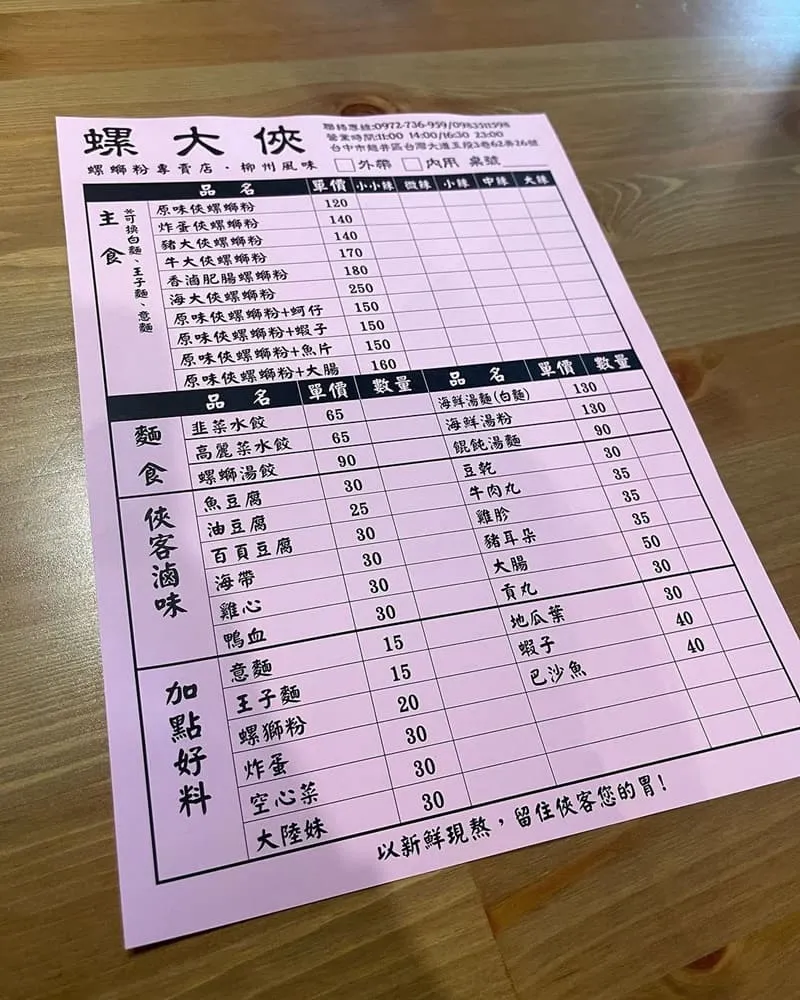 螺大俠
聯絡專線:0972-736-959/0983511598
營業時間:11:00 14:00/16:30 23:00
台中市龍井區台灣大道五段3巷62弄26號
螺螄粉專賣店·柳州風味 外帶 內用 桌號
品名 單價 小小辣 微辣 小辣 中辣 大辣
主食
※可換白麵、王子麵、意麵
原味俠螺螄粉 120
炸蛋俠螺螄粉 140
豬大俠螺螄粉 140
牛大俠螺螄粉 170
香滷肥腸螺螄粉 180
海大俠螺螄粉 250
原味俠螺螄粉+蚵仔 150
原味俠螺螄粉+蝦子 150
原味俠螺螄粉+魚片 150
原味俠螺螄粉+大腸 160
品名 單價 數量 品名 單價 數量
麵食
韭菜水餃 65 海鮮湯麵(白麵) 130
高麗菜水餃 65 海鮮湯粉 130
螺螄湯餃 90 餛飩湯麵 90
俠客滷味
魚豆腐 30 豆乾 30
油豆腐 25 牛肉丸 35
百頁豆腐 30 雞胗 35
海帶 30 豬耳朵 35
雞心 30 大腸 50
鴨血 30 貢丸 30
加點好料
意麵 15 地瓜葉 30
王子麵 15 蝦子 40
螺獅粉 20 巴沙魚 40
炸蛋 30
空心菜 30
大陸妹 30
以新鮮現熬，留住俠客您的胃!